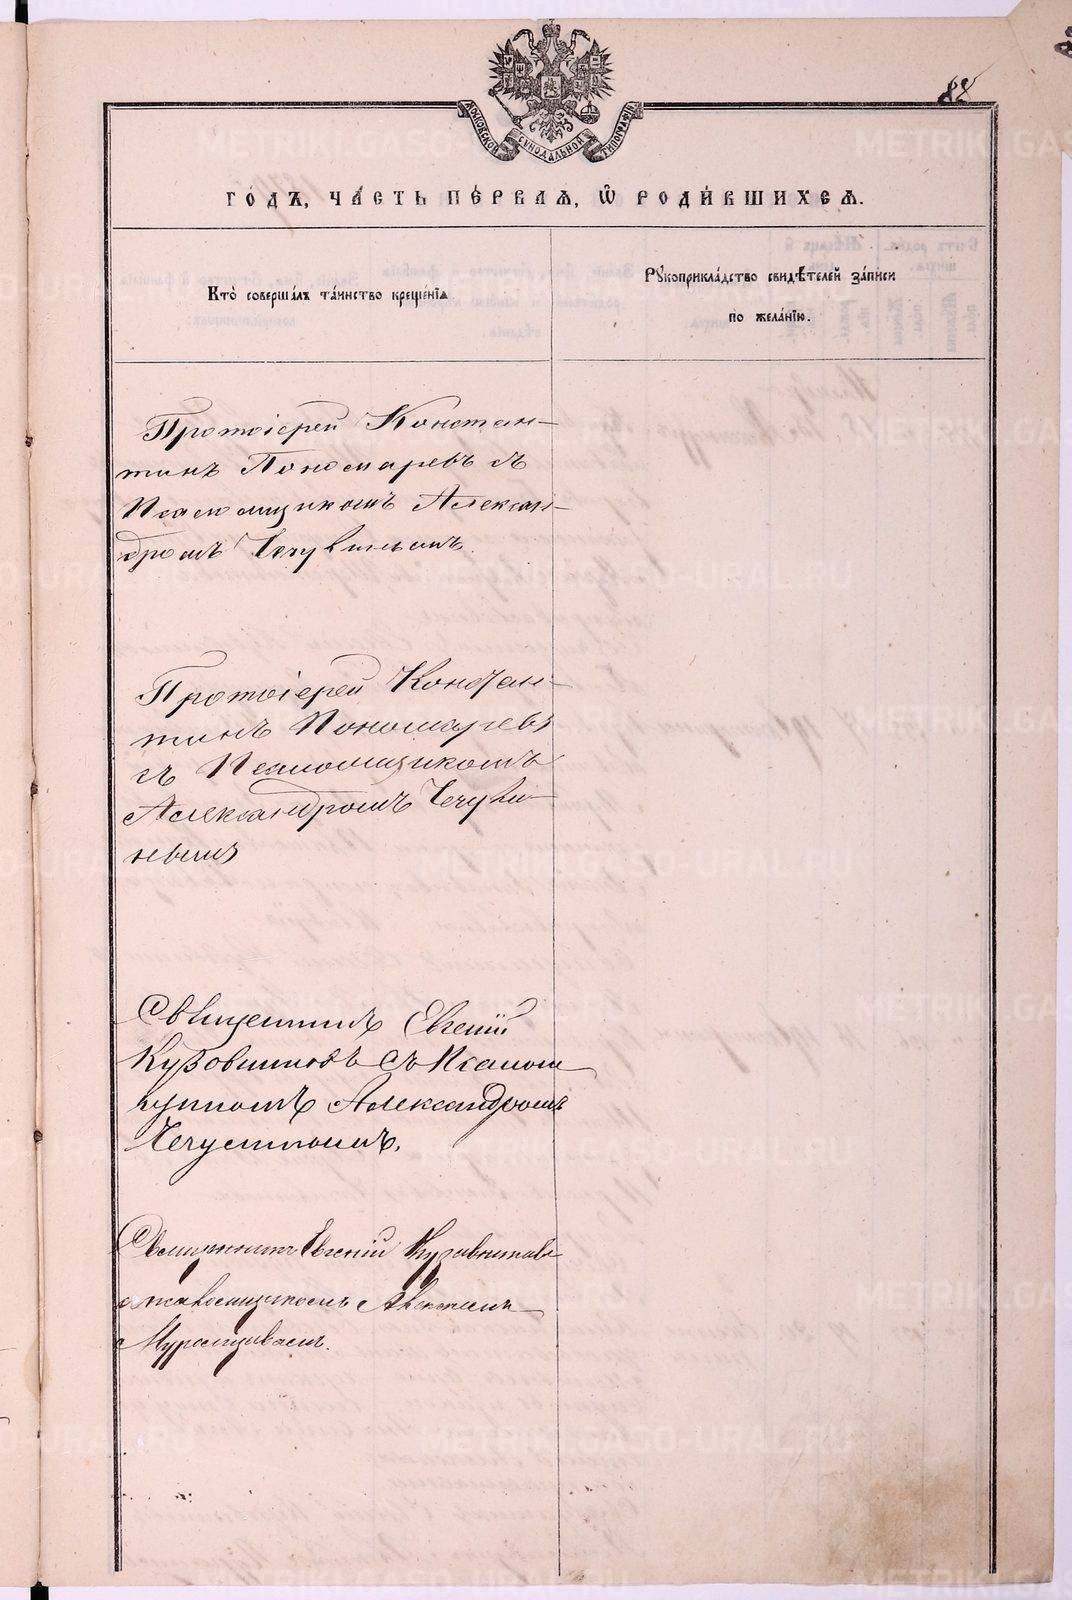 88
МОСКОВСКОЙ СѴНОДАЛЬНОЙ ТИПОГРАФІИ
ГО́ДЪ, ЧА́СТЬ ПЕ́РВАѦ, Ѽ РОДИ́ВШИХСѦ.
Кто̀ соверша́лъ та́инство креще́нїѧ.
Рꙋкоприкла́дство свидѣ́телей за́писи
по жела́нїю.
Протоіерей Констан-
тинъ Пономаревъ съ
Псаломщикомъ Алексан-
дромъ Чечувинымъ.
Протоіерей Констан-
тинъ Пономаревъ
съ Псаломщикомъ
Александромъ Чечуви-
нымъ
Священникъ Евгеній
Кузовниковъ съ Псалом
щикомъ Александромъ
Священникъ Евгеній Кузовниковъ
съ псаломщикомъ
METRIKI.GASO-URAL.RU